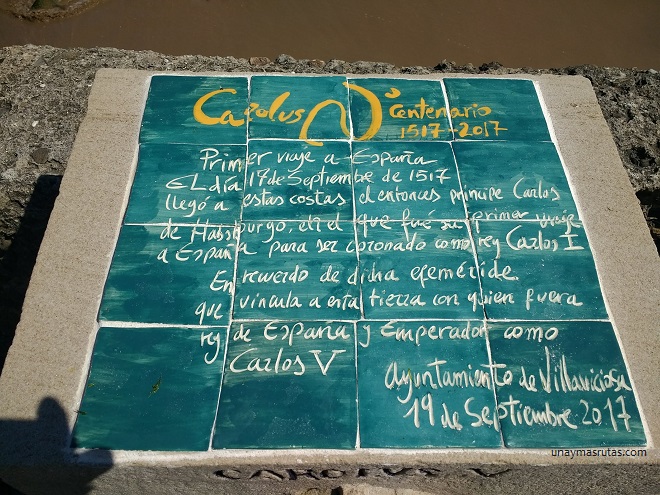 Carolus V centenario
1517-2017
Primer viaje a España
EL día 17 de Septiembre de 1517
llegó a estas costas el entonces príncipe Carlos
de Habsburgo, en el que fué su primer viaje
a España para ser coronado como rey Carlos I
En recuerdo de dicha efeméride.
que vincula a esta tierra con quien fuera
rey de España y Emperador como
Carlos V
Ayuntamiento de Villaviciosa
19 de Septiembre 2017
unaymasrutas.com
CAROLUS V